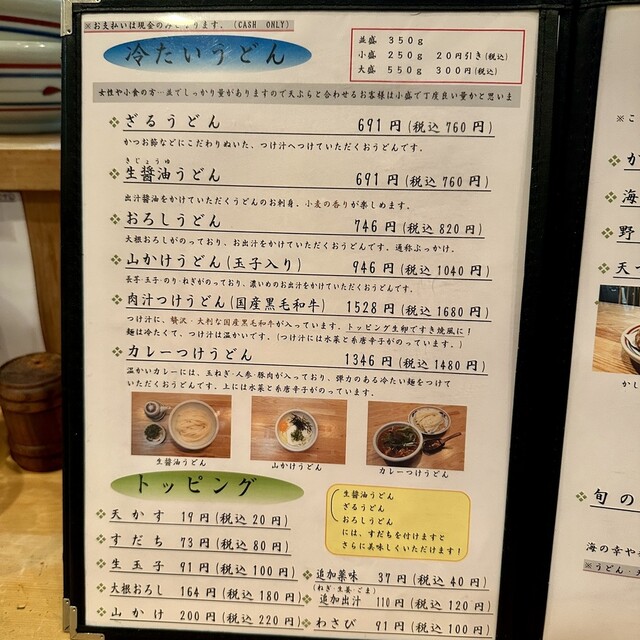 ※お支払いは現金のみとなります。(CASH ONLY)
冷たいうどん
並盛 350g
小盛 250g 20円引き(税込)
大盛 550g 300円(税込)
女性や小食の方…並でしっかり量がありますので天ぷらと合わせるお客様は小盛で丁度良い量かと思いま
ざるうどん 691円(税込760円)
かつお節などにこだわりぬいた、つけ汁へつけていただくおうどんです。
きじょうゆ
生醤油うどん 691円(税込760円)
出汁醤油をかけていただくうどんのお刺身。小麦の香りが楽しめます。
おろしうどん 746円(税込820円)
大根おろしがのっており、お出汁をかけていただくおうどんです。通称ぶっかけ。
山かけうどん(玉子入り) 946円(税込1040円)
長芋・玉子・のり・ねぎがのっており、濃いめのお出汁をかけていただくおうどんです。
肉汁つけうどん(国産黒毛和牛) 1528円(税込1680円)
つけ汁に、贅沢・大判な国産黒毛和牛が入っています。トッピング生卵ですき焼風に!
麺は冷たくて、つけ汁は温かいです。(つけ汁には水菜と糸唐辛子がのっています。)
カレーつけうどん 1346円(税込1480円)
温かいカレーには、玉ねぎ・人参・豚肉が入っており、弾力のある冷たい麺をつけて
いただくおうどんです。上には水菜と糸唐辛子がのっています。
生醤油うどん
山かけうどん
カレーつけうどん
トッピング
天かす 19円(税込20円)
すだち 73円(税込80円)
生玉子 91円(税込100円)
大根おろし 164円(税込180円)
山かけ 200円(税込220円)
生醤油うどん
ざるうどん
おろしうどん
には、すだちを付けますと
さらに美味しくいただけます!
追加薬味 37円(税込40円)
(ねぎ・生姜・ごま)
追加出汁 110円(税込120円)
わさび 91円(税込100円)
※こ
か
海
野
天つ
かし
旬の
海の幸や
※うどん・天